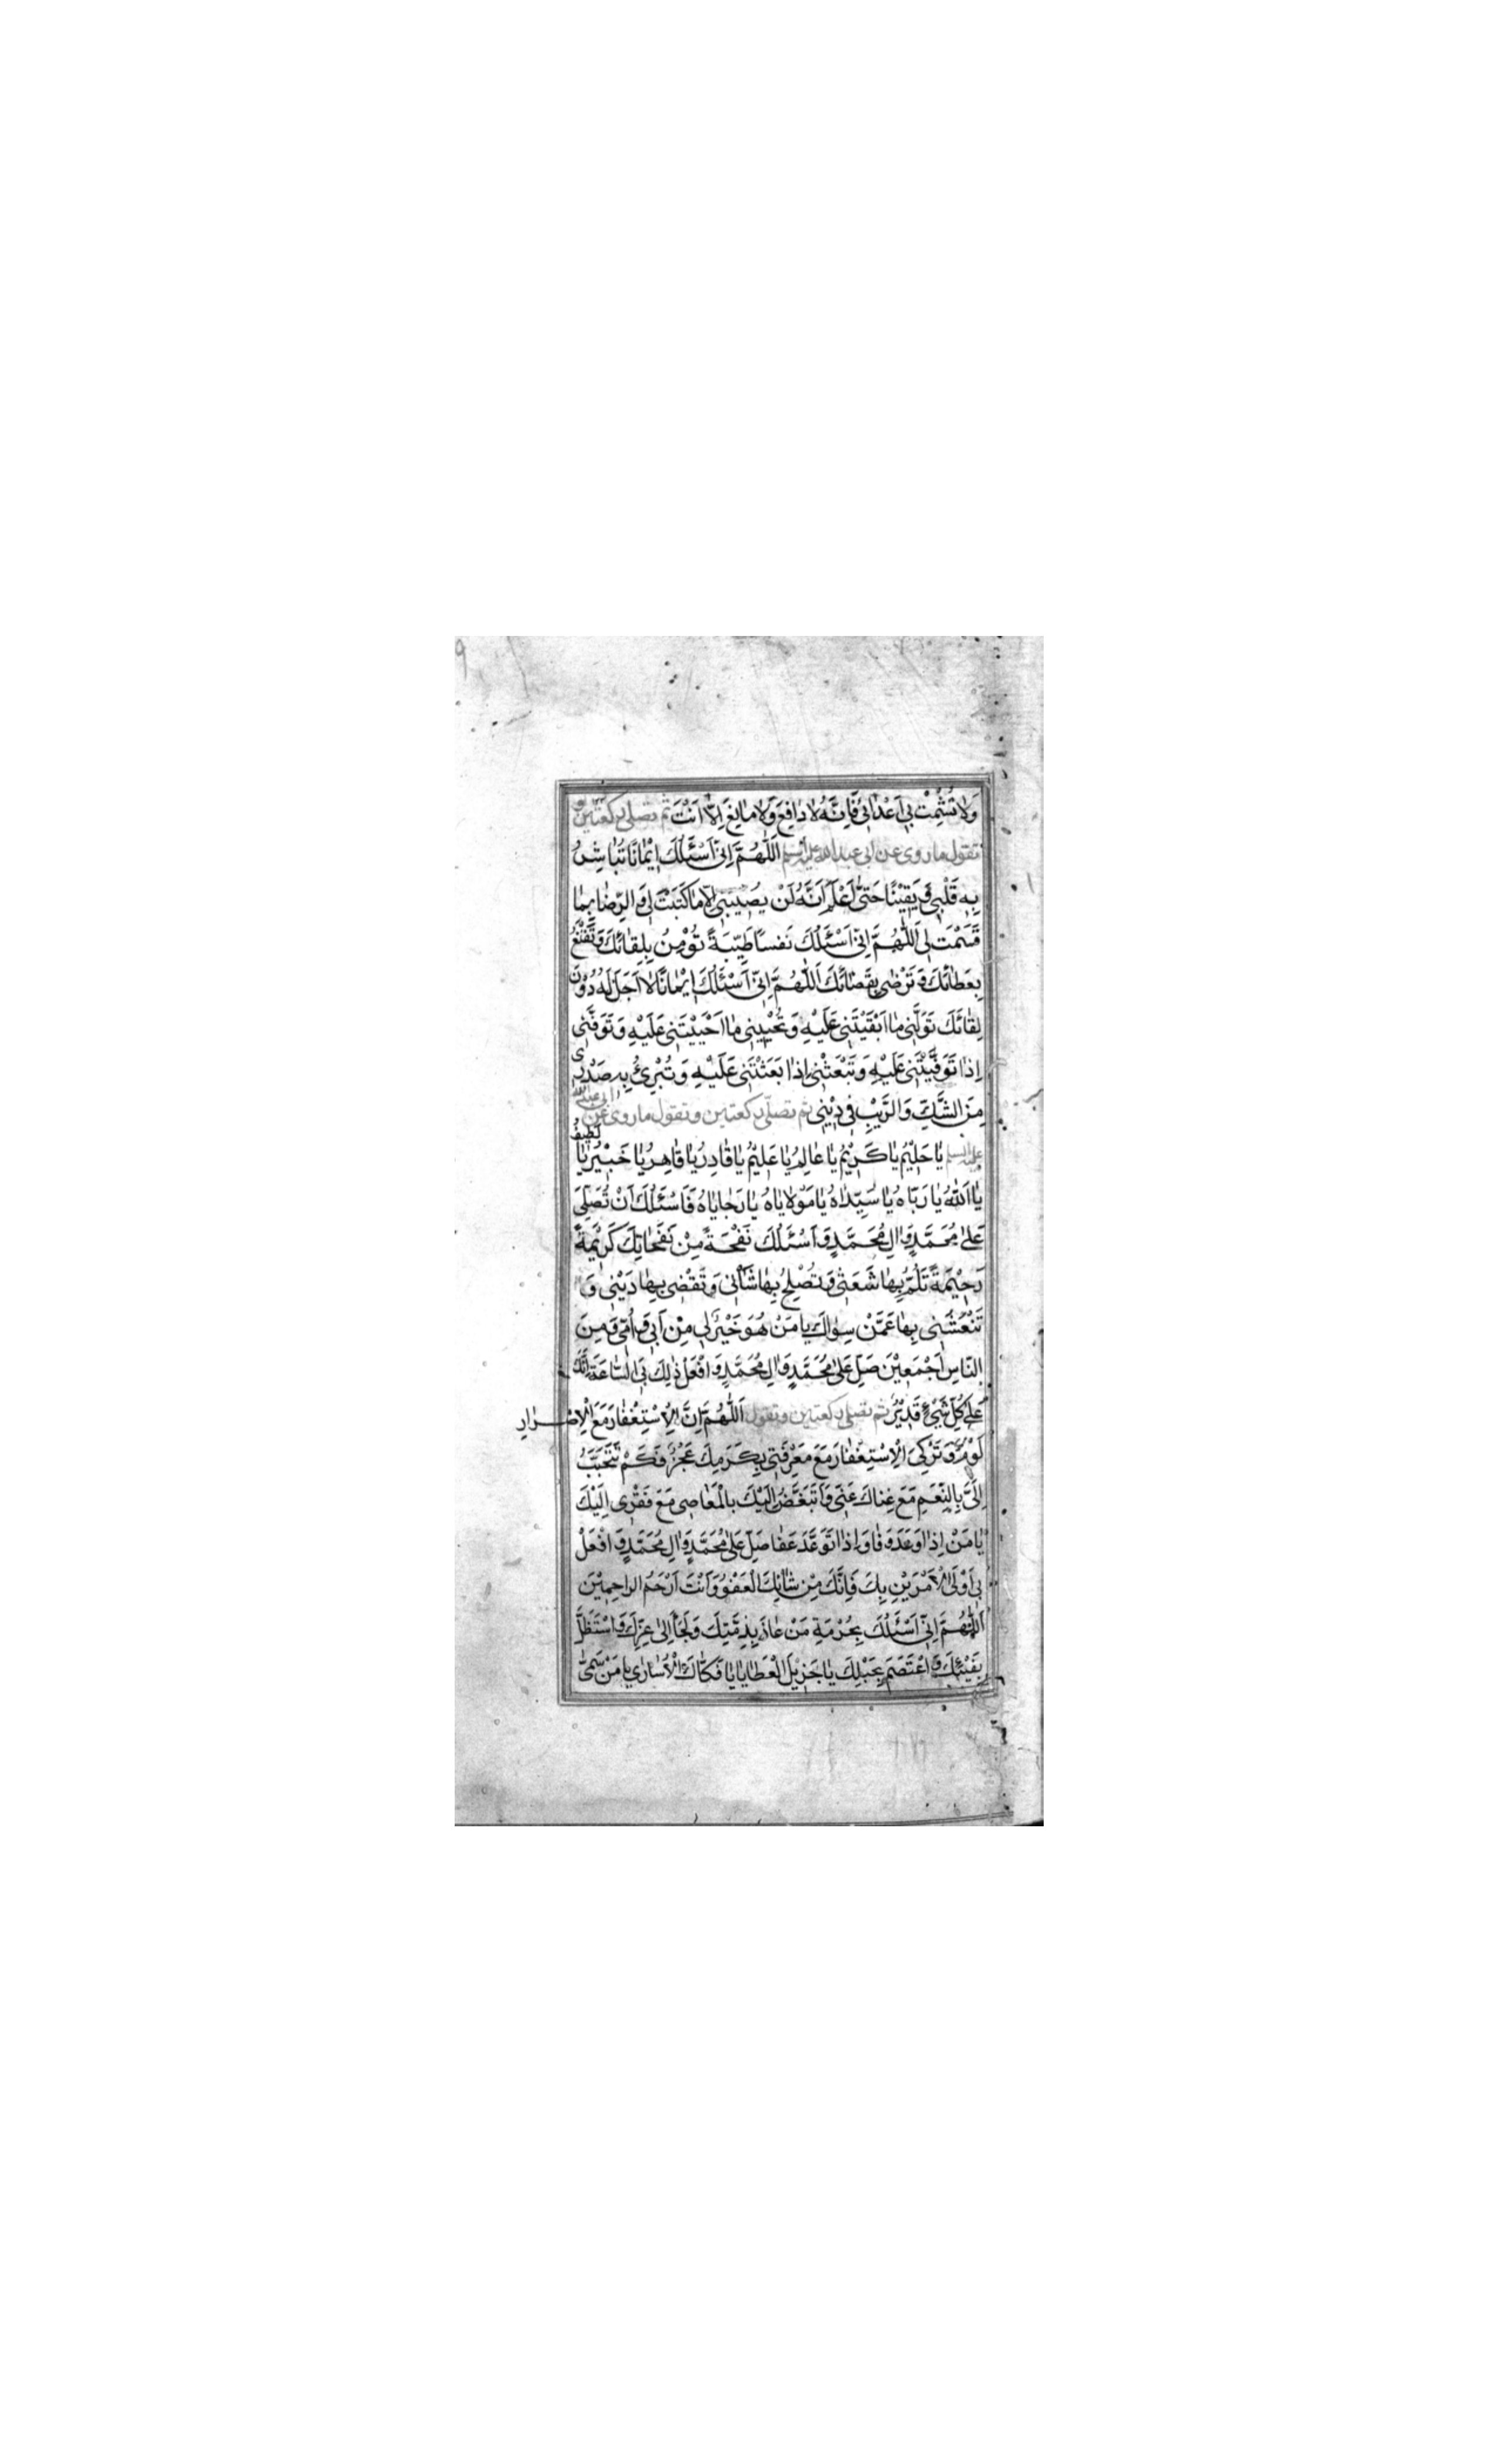 وَلا تُشْمِتْ بى اَعْدائى فَاِنَّهُ لا دافِعَ وَلا مانِعَ اِلاّ اَنْتَ ثم تصلى ركعتين و
تقول ما روى عن ابى عبدالله عليه السلم اَللّهُمَّ اِنّى اَسْئَلُكَ ايمانًا تُباشِرُ
بِهِ قَلْبى وَ يَقينًا حَتّى اَعْلَمَ اَنَّهُ لَنْ يُصيبَنى اِلاّ ما كَتَبْتَ لى وَ الرِّضا بِما
قَسَمْتَ لى اَللّهُمَّ اِنّى اَسْئَلُكَ نَفْسًا طَيِّبَةً تُؤْمِنُ بِلِقائِكَ وَ تَقْنَعُ
بِعَطائِكَ وَ تَرْضى بِقَضائِكَ اَللّهُمَّ اِنّى اَسْئَلُكَ ايمانًا لا اَجَلَ لَهُ دُونَ
لِقائِكَ تَوَلَّنى ما اَبْقَيْتَنى عَلَيْهِ وَ تُحْيِينى ما اَحْيَيْتَنى عَلَيْهِ وَ تَوَفَّنى
اِذا تَوَفَّيْتَنى عَلَيْهِ وَ تَبْعَثُنى اِذا بَعَثْتَنى عَلَيْهِ وَ تُبْرِئُ بِهِ صَدْرى
مِنَ الشَّكِّ وَ الرَّيْبِ فى دينى ثم تصلى ركعتين و تقول ما روى عن ابى عبدالله
عليه السلم يا حَليمُ يا كَريمُ يا عالِمُ يا عَليمُ يا قادِرُ يا قاهِرُ يا خَبيرُ يا لَطيفُ
يا اَللّهُ يا رَبّاهُ يا سَيِّداهُ يا مَوْلاياهُ يا رَجاياهُ فَاَسْئَلُكَ اَنْ تُصَلِّىَ
عَلى مُحَمَّدٍ وَ الِ مُحَمَّدٍ وَ اَسْئَلُكَ نَفْحَةً مِنْ نَفَحاتِكَ كَريمَةً
رَحيمَةً تَلُمُّ بِها شَعَثى وَ تُصْلِحُ بِها شَاْنى وَ تَقْضى بِها دَيْنى وَ
تَنْعَشُنى بِها عَمَّنْ سِواكَ يا مَنْ هُوَ خَيْرٌ لى مِنْ اَبى وَ اُمّى وَ مِنَ
النّاسِ اَجْمَعينَ صَلِّ عَلى مُحَمَّدٍ وَ الِ مُحَمَّدٍ وَ افْعَلْ ذلِكَ بِىَ السّاعَةَ اِنَّكَ
عَلى كُلِّ شَىْءٍ قَديرٌ ثم تصلى ركعتين و تقول اَللّهُمَّ اِنَّ الاِسْتِغْفارَ مَعَ الاِصْرارِ
لَوْمٌ وَ تَرْكِىَ الاِسْتِغْفارَ مَعَ مَعْرِفَتى بِكَرَمِكَ عَجْزٌ فَكَمْ تَتَحَبَّبُ
اِلَىَّ بِالنِّعَمِ مَعَ غِناكَ عَنّى وَ اَتَبَغَّضُ اِلَيْكَ بِالْمَعاصى مَعَ فَقْرى اِلَيْكَ
يا مَنْ اِذا وَعَدَ وَفا وَ اِذا تَوَعَّدَ عَفا صَلِّ عَلى مُحَمَّدٍ وَ الِ مُحَمَّدٍ وَ افْعَلْ
بى اَوْلَى الاَمْرَيْنِ بِكَ فَاِنَّكَ مِنْ شَانِكَ الْعَفْوُ وَ اَنْتَ اَرْحَمُ الراحِمينَ
اَللّهُمَّ اِنّى اَسْئَلُكَ بِحُرْمَةِ مَنْ عاذَ بِذِمَّتِكَ وَ لَجَاَ اِلى عِزِّكَ وَ اسْتَظَلَّ
بِفَيْئِكَ وَ اعْتَصَمَ بِحَبْلِكَ يا جَزيلَ الْعَطايا يا فَكّاكَ الاُسارى يا مَنْ سَمّى